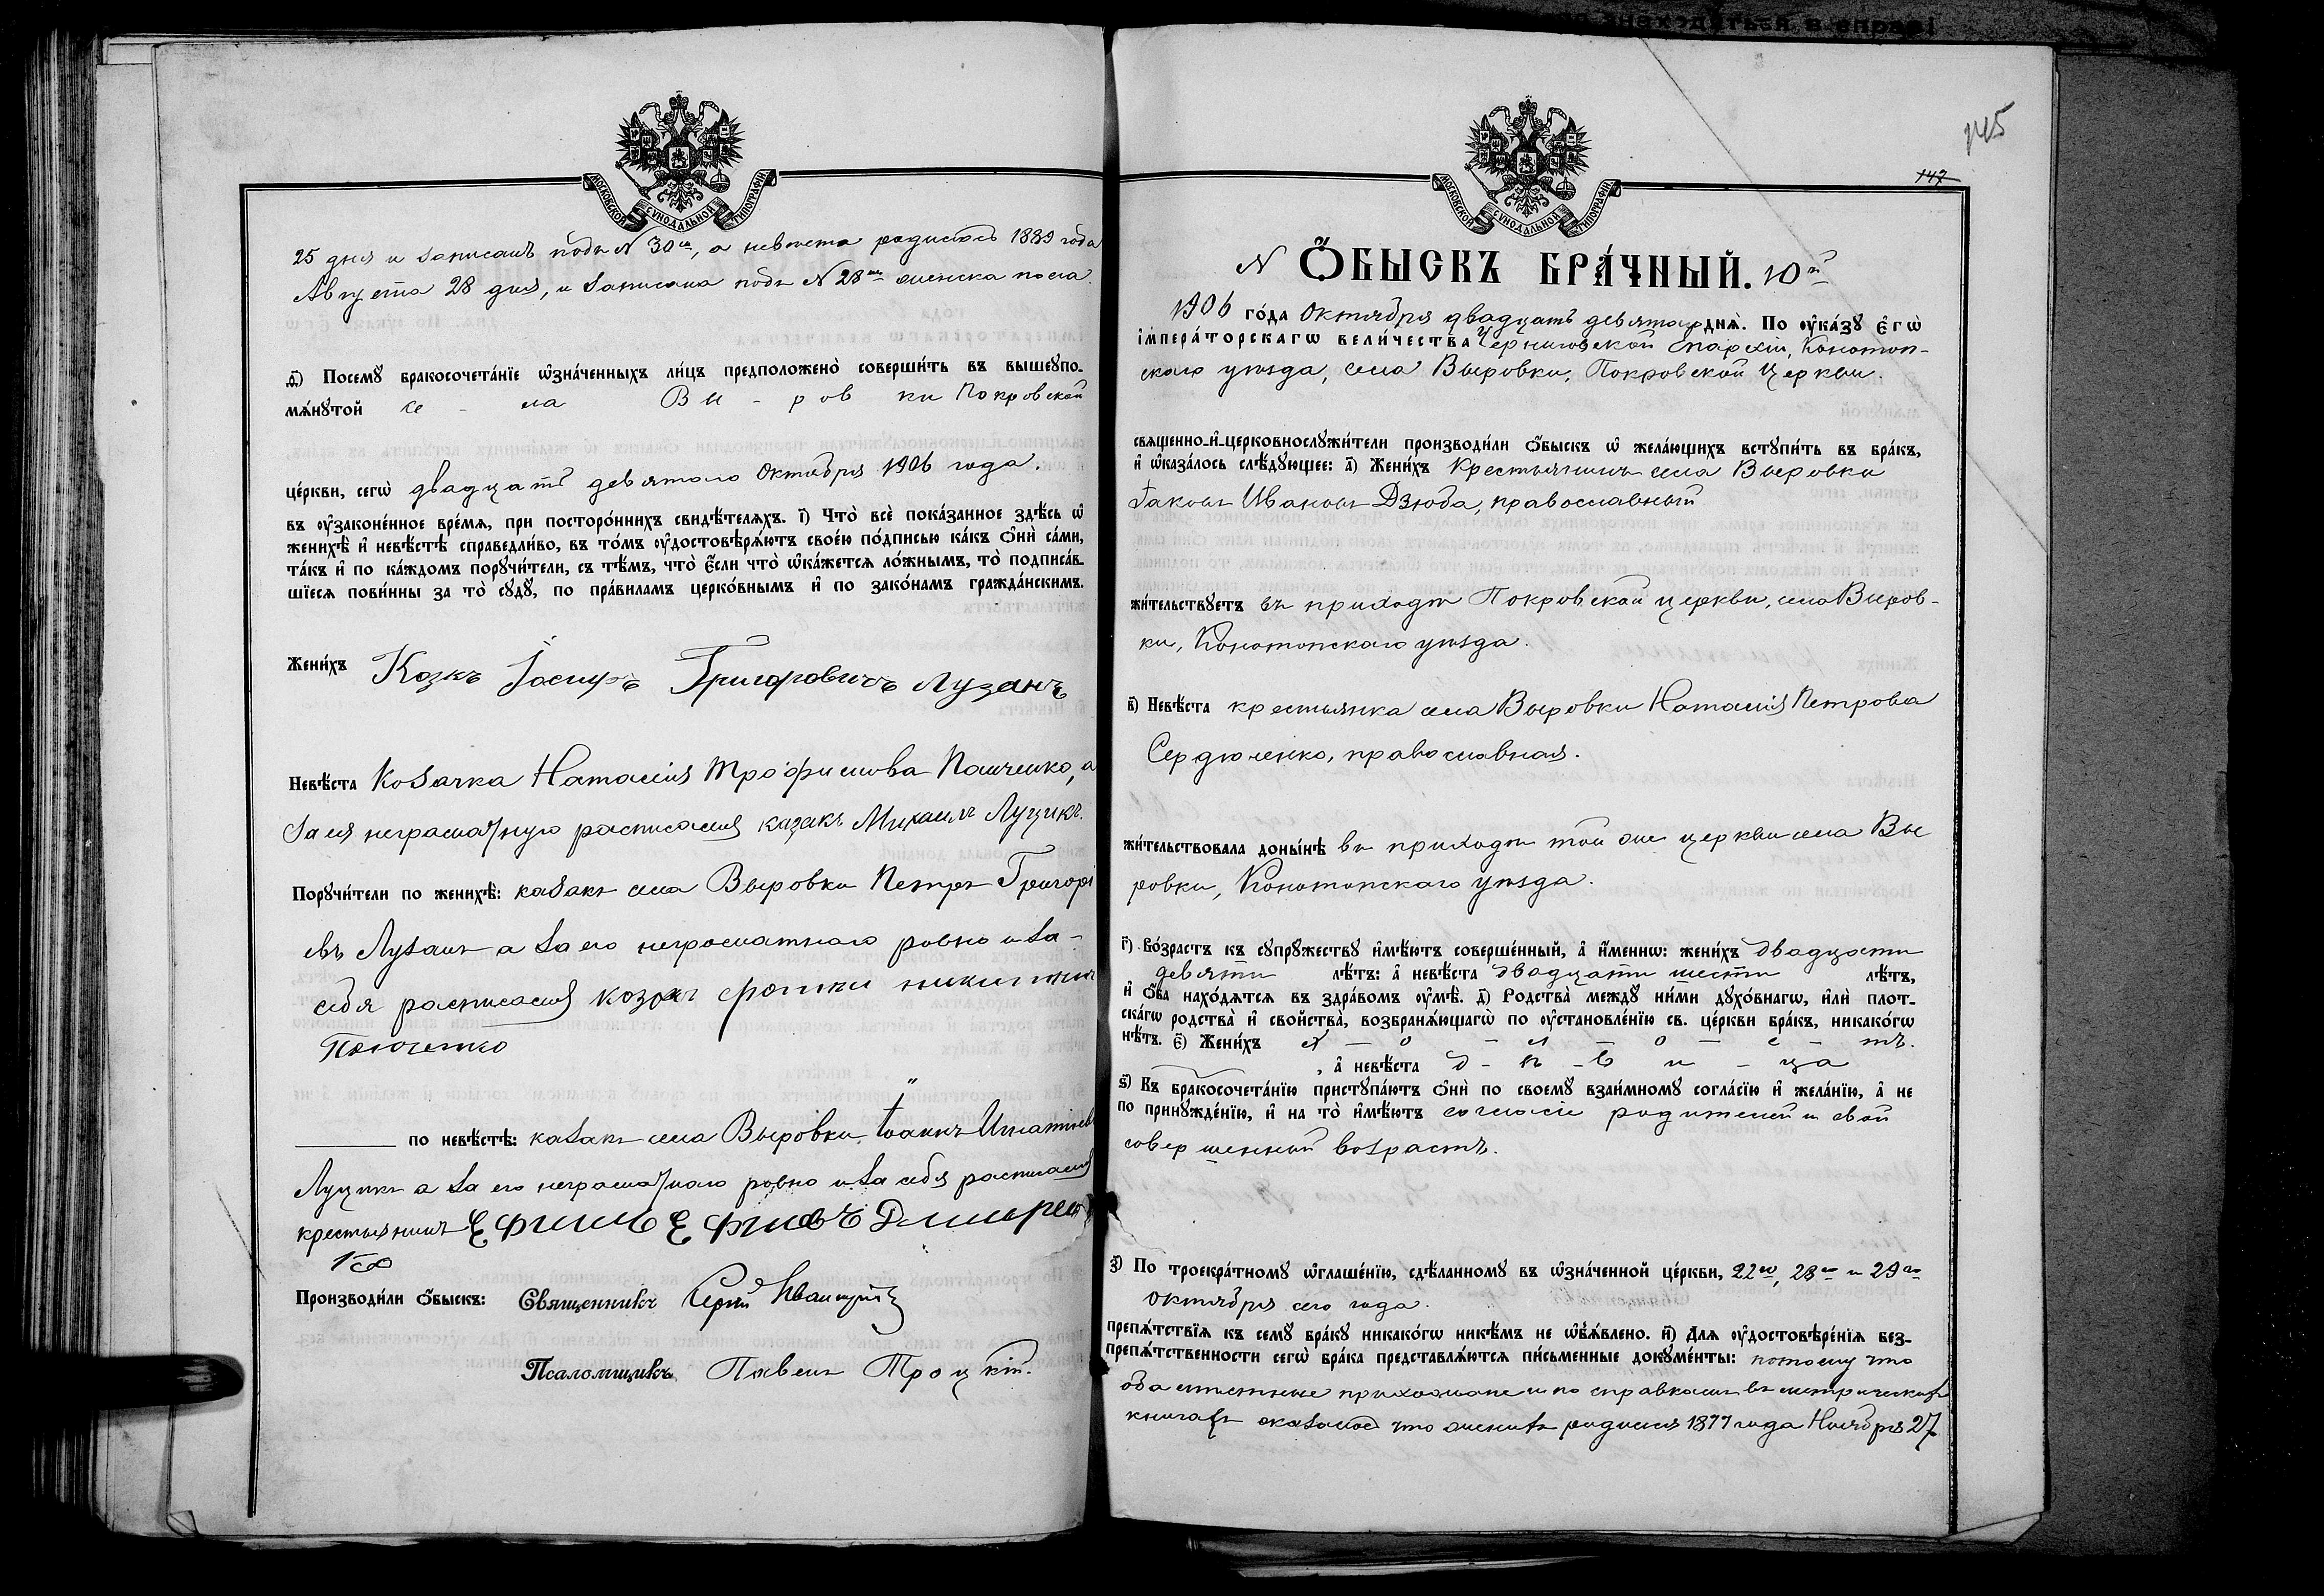 МОСКОВСКОЙ СѴНОДАЛЬНОЙ ТИПОГРАФІИ
25 дня и записанъ подъ N 30мъ, а невѣста родилась 1889 года
Августа 28 дня, и записана подъ N 28мъ женска пола.
д҃) Посемꙋ бракосочета́нїе ѡ҆зна́ченныхъ ли́цъ предположено̀ соверши́ть въ вышеꙋпо-
мѧ́нꙋтой се - ла Вы - ров ки Покровской
це́ркви, сегѡ̀ двадцать девятого Октября 1906 года.
въ ᲂу҆законе́нное вре́мѧ, при посторо́ннихъ свидѣ́телѧхъ. і҃) Что̀ всѐ пока́занное здѣ́сь ѡ҆
женихѣ̀ и҆ невѣ́стѣ справедли́во, въ то́мъ ᲂу҆достовѣрѧ́ютъ свое́ю по́дписью ка́къ ѻ҆нѝ са́ми,
та́къ и҆ по ка́ждомъ порꙋчи́тели, съ тѣ́мъ, что̀ є҆́сли что̀ ѡ҆ка́жетсѧ ло́жнымъ, то̀ подписа́в-
шїесѧ пови́нны за то̀ сꙋдꙋ̀, по пра́виламъ церко́внымъ и҆ по зако́намъ гражда́нскимъ.
Жени́хъ Козкъ Іосиүъ Григоровичъ Лузанъ
Невѣ́ста Козачка Наталія Трофимова Панченко, а
за ея неграмотную росписался казакъ Михаилъ Луцикъ.
Порꙋчи́тели по женихѣ̀: казакъ села Выровки Петръ Григорі
евъ Лузанъ а за его неграмотнаго ровно и за-
себя росписался козакъ
по невѣ́стѣ: казакъ села Выровки, Іоаннъ Игнатіевъ
Луцикъ а за его неграмотнаго ровно и за себя росписался
крестьянинъ Ефимъ
Производи́ли ѻ҆́быскъ: Священникъ Сергій
Псаломщикъ Павелъ Троцкій.
145
147
МОСКОВСКОЙ СѴНОДАЛЬНОЙ ТИПОГРАФІИ
N ѺБЫСКЪ БРА́ЧНЫЙ. 10й
1906 го́да Октября двадцать девятаго днѧ̀. По ᲂу҆ка́зꙋ є҆гѡ̀
і҆мпера́торскагѡ вели́чества Черниговской Епархіи, Конотоп-
скаго уѣзда, села Выровки, Покровской Церкви.
свѧщенно-и҆-церковнослꙋжи́тели производи́ли ѻ҆́быскъ ѡ҆ жела́ющихъ встꙋпи́ть въ бра́къ,
и҆ ѡ҆каза́лось слѣ́дꙋющее: а҃) Жени́хъ Крестьянинъ села Выровки
Іаковъ Ивановъ Дзюба, православный
жи́тельствꙋетъ въ приходѣ Покровской церкви, села Выров-
ки, Конотопскаго уѣзда.
в҃) Невѣ́ста крестьянка села Выровки Наталія Петрова
Сердюченко, православная.
жи́тельствовала доны́нѣ въ приходѣ той же церкви села Вы
ровки, Конотопскаго уѣзда.
г҃) Во́зрастъ къ сꙋпрꙋ́жествꙋ и҆мѣ́ютъ соверше́нный, а҆ и҆́менно: жени́хъ двадцати
девяти лѣ́тъ: а҆ невѣ́ста двадцати шести лѣ́тъ,
и҆ ѻ҆́ба нахо́дѧтсѧ въ здра́вомъ ᲂу҆мѣ̀. д҃) Родства̀ междꙋ ни́ми дꙋхо́внагѡ, и҆лѝ плот-
ска́гѡ родства̀ и҆ сво́йства, возбранѧ́ющагѡ по ᲂу҆становле́нїю св. це́ркви бра́къ, никако́гѡ
нѣ́тъ. є҃) Жени́хъ х - о - л - о - с - тъ.
, а҆ невѣ́ста д - ѣ - в и - ца
ѕ҃) Къ бракосочета́нїю пристꙋпа́ютъ ѻ҆нѝ по своемꙋ̀ взаи́мномꙋ согла́сїю и҆ жела́нїю, а҆ не
по принꙋжде́нїю, и҆ на то̀ и҆мѣ́ютъ согласіе родителей и свой
совершенный возрастъ.
з҃) По троекра́тномꙋ ѡ҆глаше́нїю, сдѣ́ланномꙋ въ ѡ҆зна́ченной це́ркви, 22го, 28го и 29го
октября сего года.
препѧ́тствїѧ къ семꙋ̀ бра́кꙋ никако́гѡ никѣ́мъ не ѡ҆б̾ѧ́влено. и҃) Длѧ ᲂу҆достовѣре́нїѧ без-
препѧ́тственности сегѡ̀ бра́ка представлѧ́ютсѧ пи́сьменные докꙋме́нты: потому что
оба мѣстные прихожане и по справкамъ въ метрическихъ
книгахъ оказалось что женихъ родился 1877 года Ноября 27